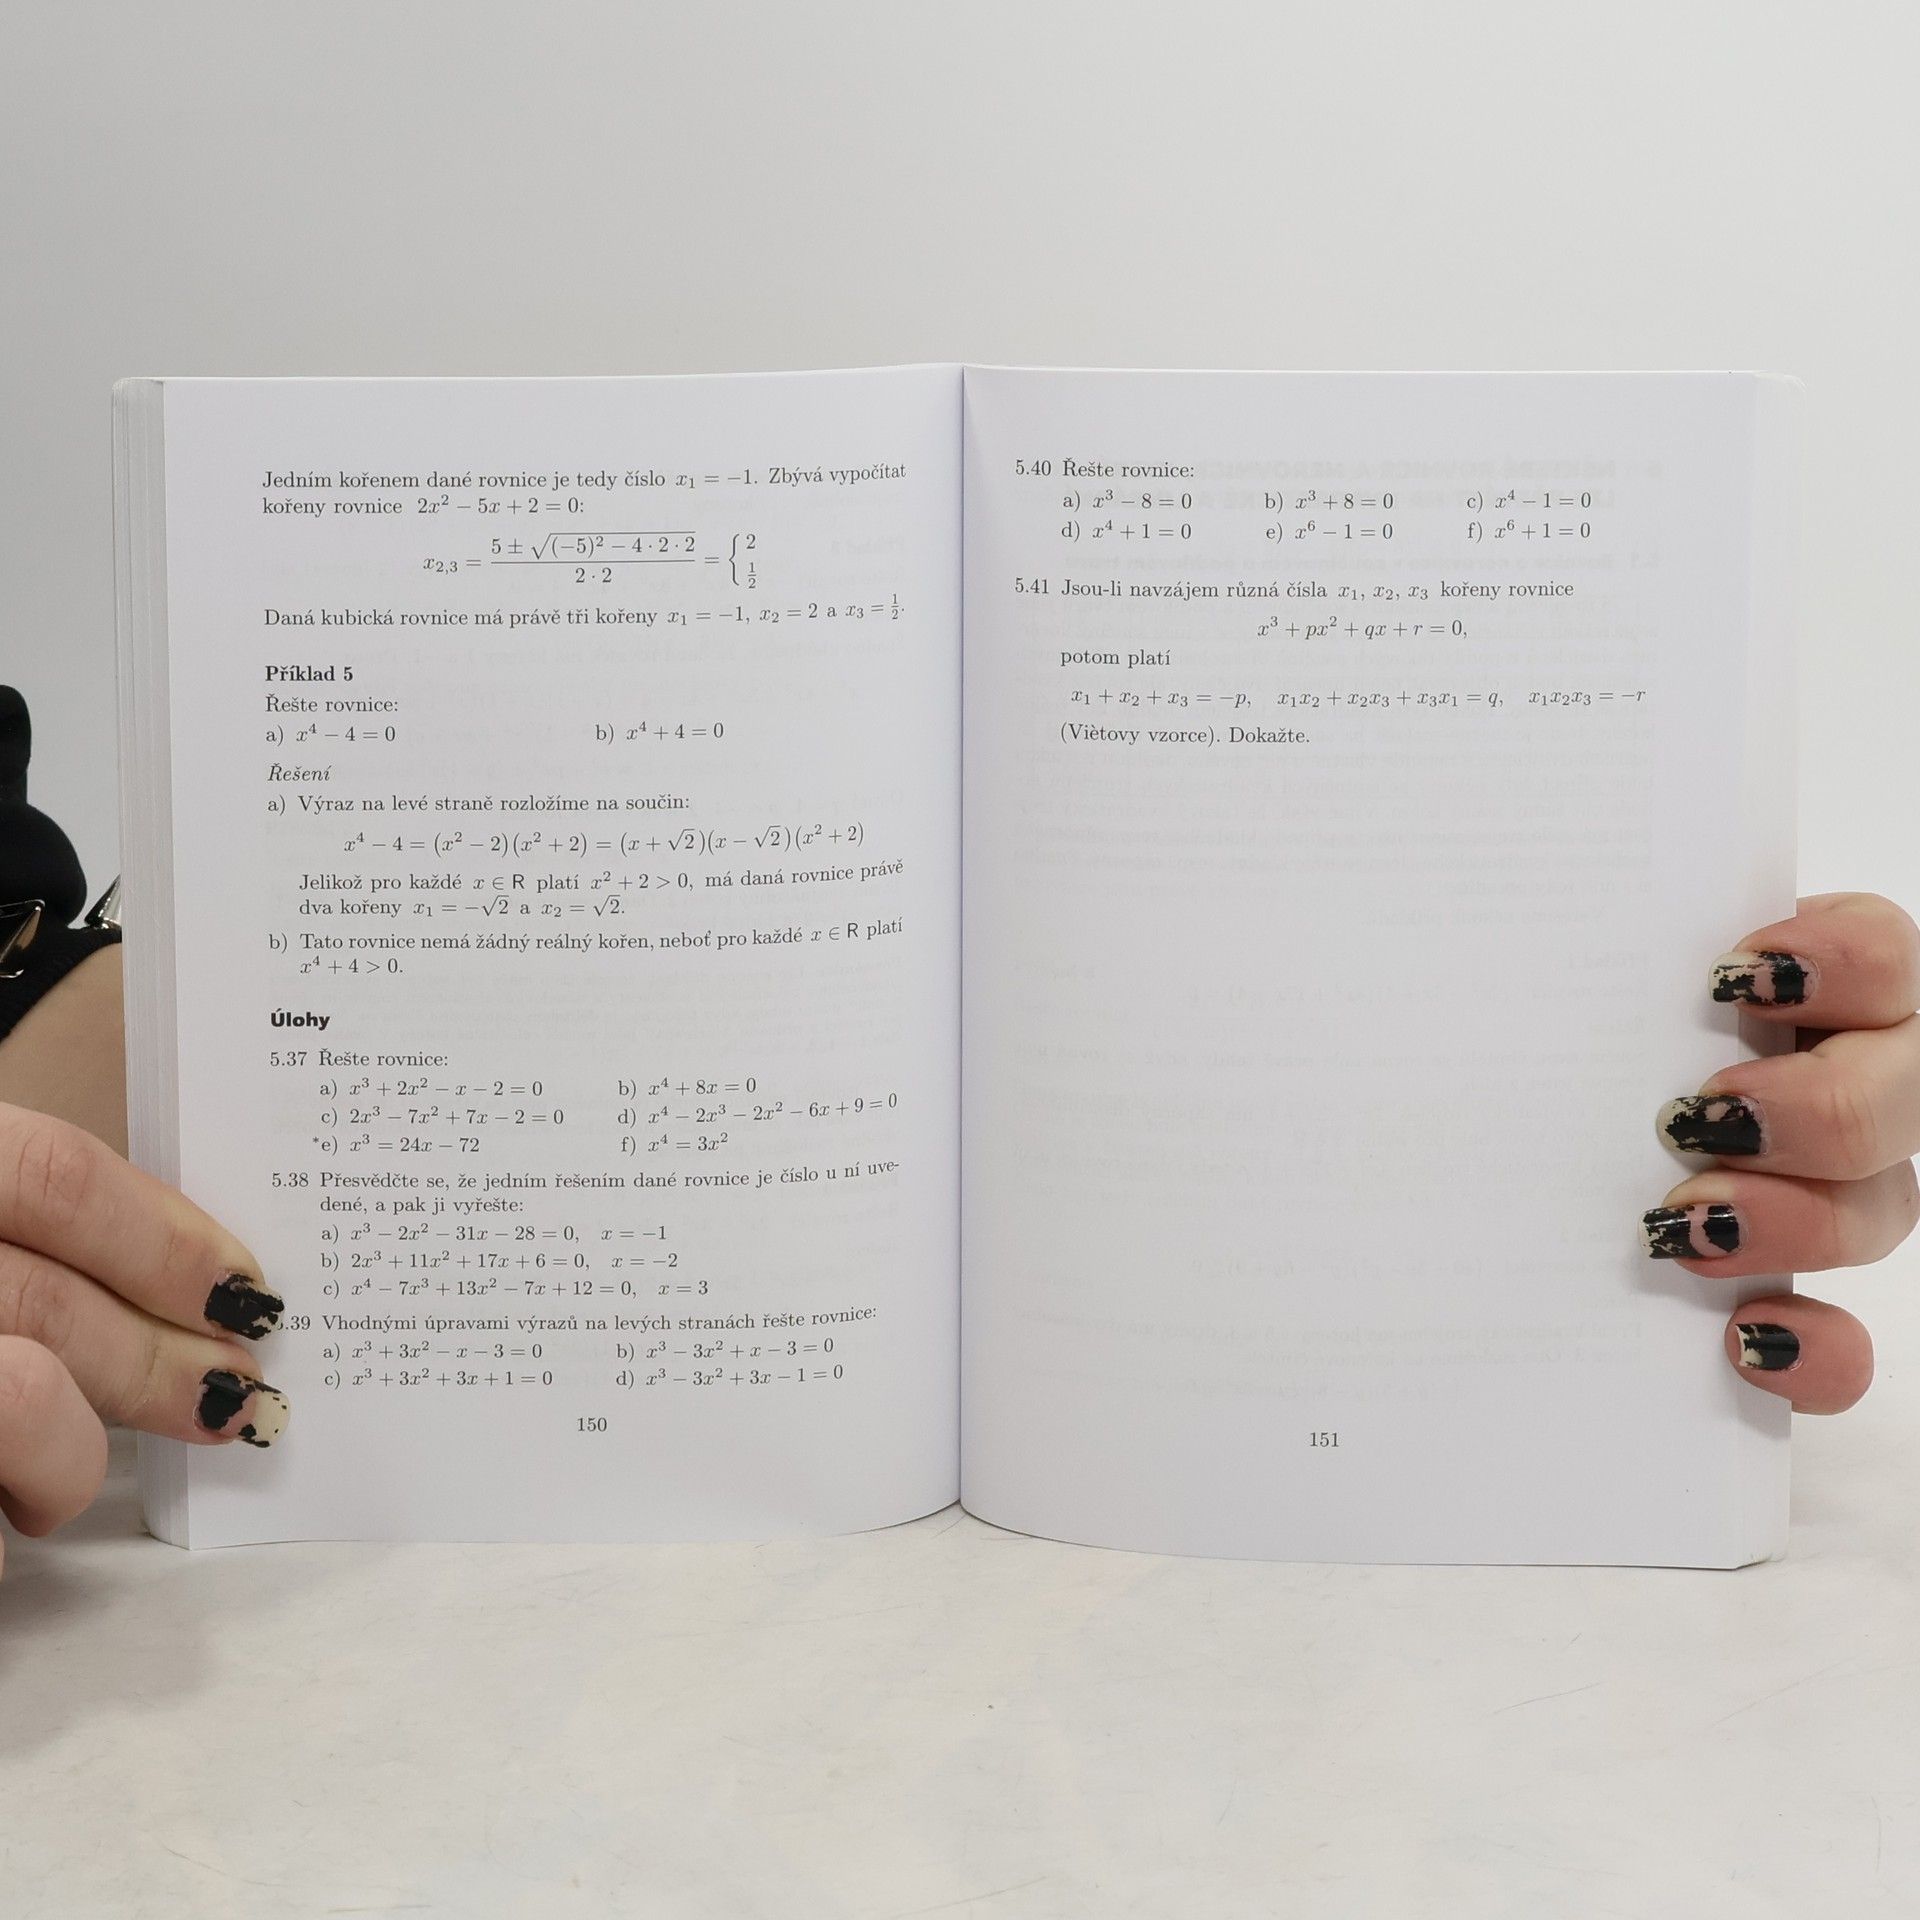 Jedním kořenem dané rovnice je tedy číslo x₁ = −1. Zbývá vypočítat
kořeny rovnice 2x² − 5x + 2 = 0:
x₂,₃ = (5 ± √((−5)² − 4 · 2 · 2)) / (2 · 2) = { 2 ; 1/2
Daná kubická rovnice má právě tři kořeny x₁ = −1, x₂ = 2 a x₃ = 1/2.
Příklad 5
Řešte rovnice:
a) x⁴ − 4 = 0 b) x⁴ + 4 = 0
Řešení
a) Výraz na levé straně rozložíme na součin:
x⁴ − 4 = (x² − 2)(x² + 2) = (x + √2)(x − √2)(x² + 2)
Jelikož pro každé x ∈ R platí x² + 2 > 0, má daná rovnice právě
dva kořeny x₁ = −√2 a x₂ = √2.
b) Tato rovnice nemá žádný reálný kořen, neboť pro každé x ∈ R platí
x⁴ + 4 > 0.
Úlohy
5.37 Řešte rovnice:
a) x³ + 2x² − x − 2 = 0 b) x⁴ + 8x = 0
c) 2x³ − 7x² + 7x − 2 = 0 d) x⁴ − 2x³ − 2x² − 6x + 9 = 0
*e) x³ = 24x − 72 f) x⁴ = 3x²
5.38 Přesvědčte se, že jedním řešením dané rovnice je číslo u ní uve-
dené, a pak ji vyřešte:
a) x³ − 2x² − 31x − 28 = 0, x = −1
b) 2x³ + 11x² + 17x + 6 = 0, x = −2
c) x⁴ − 7x³ + 13x² − 7x + 12 = 0, x = 3
5.39 Vhodnými úpravami výrazů na levých stranách řešte rovnice:
a) x³ + 3x² − x − 3 = 0 b) x³ − 3x² + x − 3 = 0
c) x³ + 3x² + 3x + 1 = 0 d) x³ − 3x² + 3x − 1 = 0
150
5.40 Řešte rovnice:
a) x³ − 8 = 0 b) x³ + 8 = 0 c) x⁴ − 1 = 0
d) x⁴ + 1 = 0 e) x⁶ − 1 = 0 f) x⁶ + 1 = 0
5.41 Jsou-li navzájem různá čísla x₁, x₂, x₃ kořeny rovnice
x³ + px² + qx + r = 0,
potom platí
x₁ + x₂ + x₃ = −p, x₁x₂ + x₂x₃ + x₃x₁ = q, x₁x₂x₃ = −r
(Viètovy vzorce). Dokažte.
151